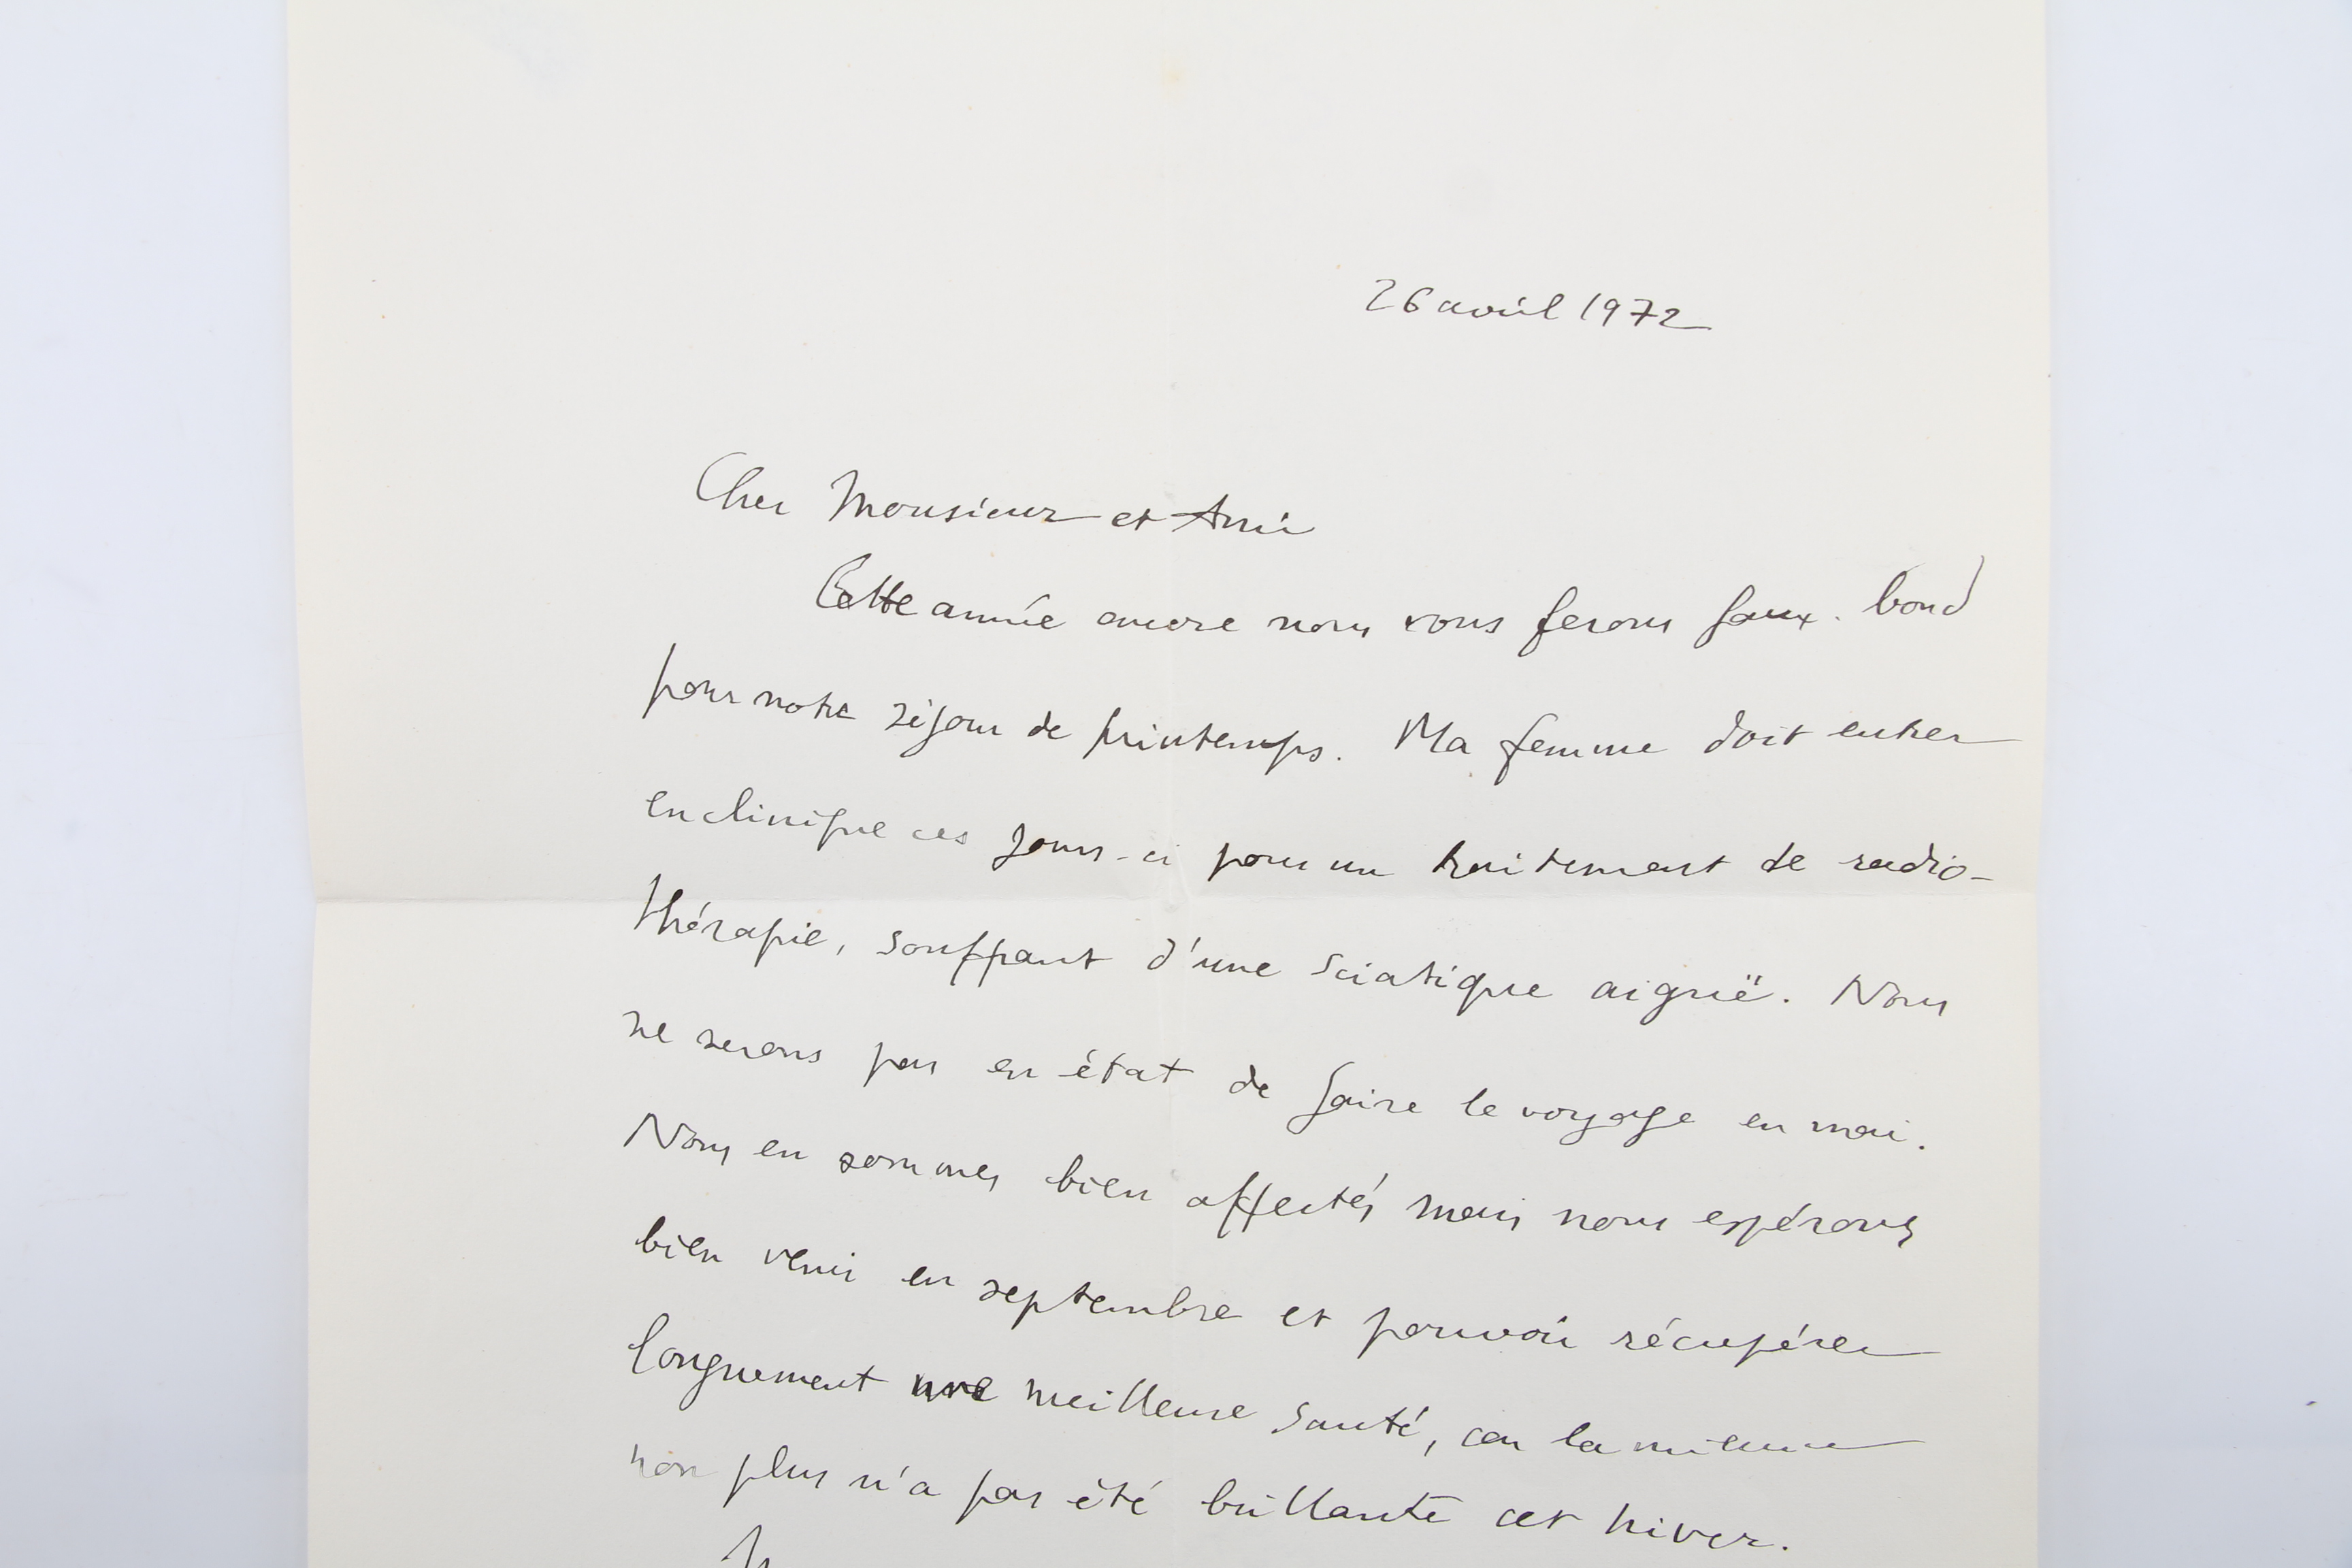 26 avril 1972
Cher Monsieur et Ami
Cette année encore nous vous ferons faux-bond
pour notre séjour de printemps. Ma femme doit entrer
en clinique ces jours-ci pour un traitement de radio-
thérapie, souffrant d'une sciatique aiguë. Nous
ne serons pas en état de faire le voyage en mai.
Nous en sommes bien affectés mais nous espérons
bien venir en septembre et pouvoir récupérer
longuement une meilleure santé, car la mienne
non plus n'a pas été brillante cet hiver.